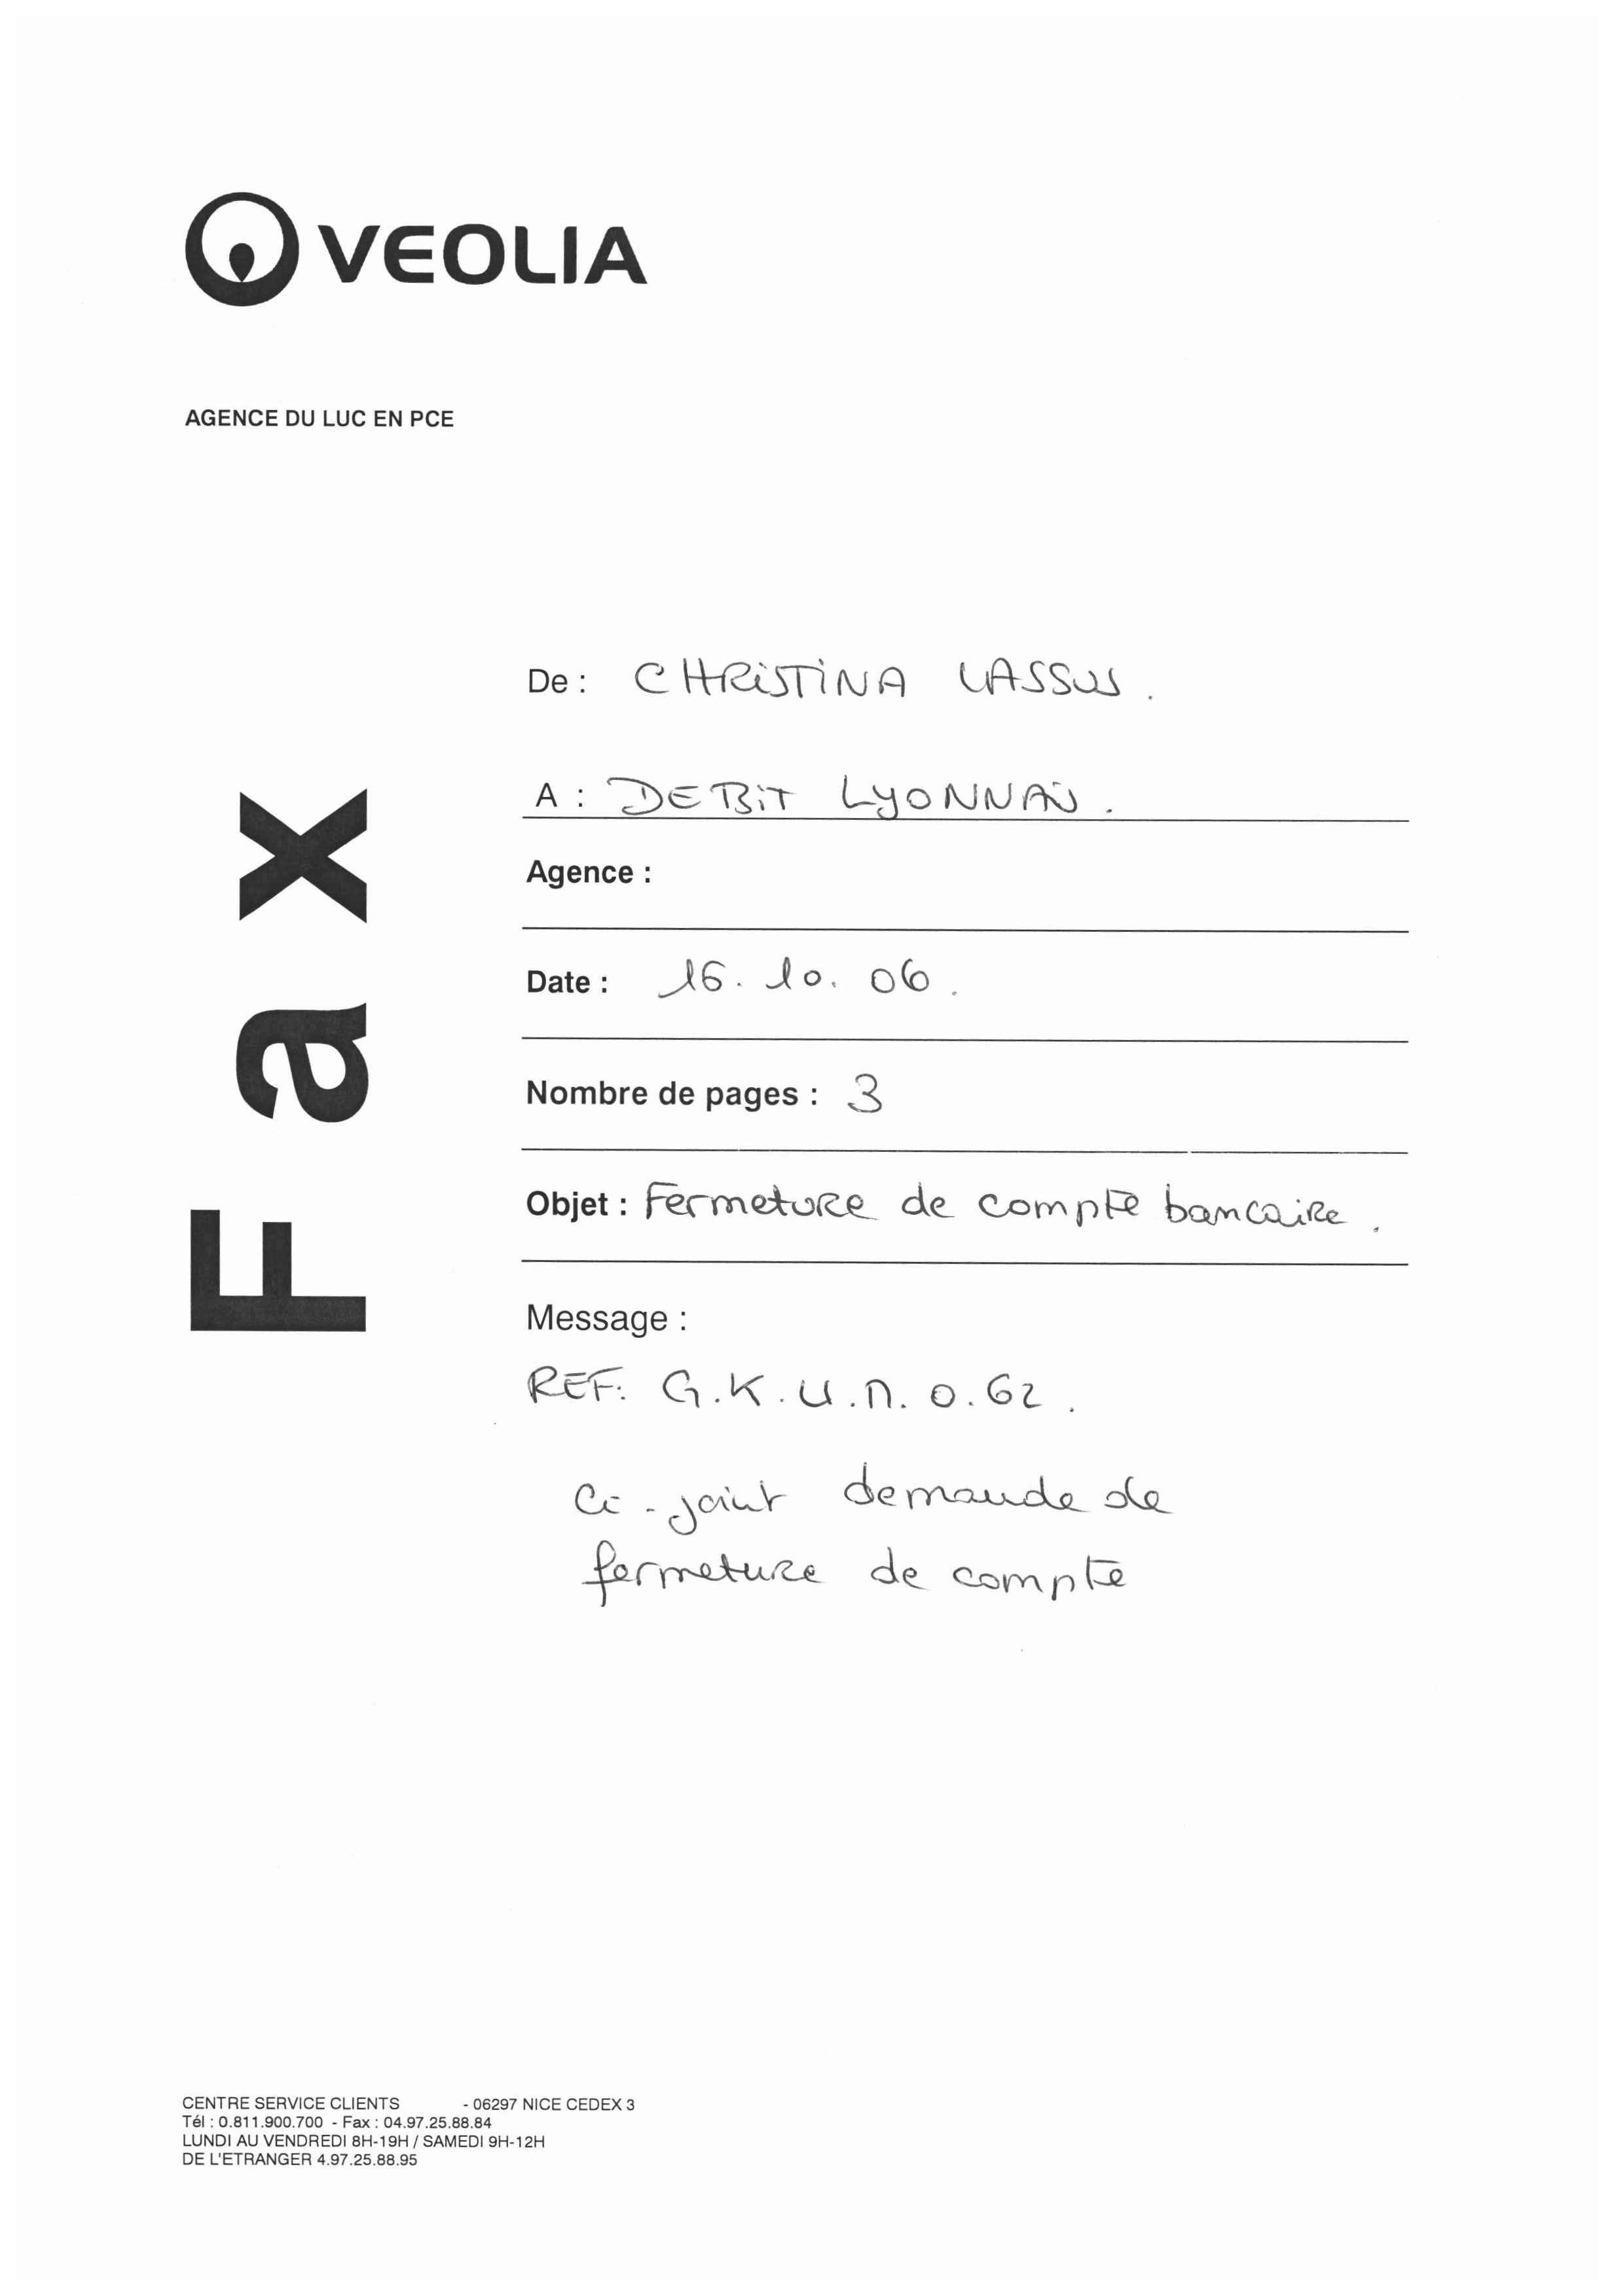 VEOLIA
AGENCE DU LUC EN PCE
Fax
De : CHRISTINA LASSUS.
A : DEBIT LYONNAIS.
Agence :
Date : 16.10.06.
Nombre de pages : 3
Objet : Fermeture de compte bancaire.
Message :
REF: G.K.U.N.O.62.
Ci-joint demande de
fermeture de compte
CENTRE SERVICE CLIENTS - 06297 NICE CEDEX 3
Tél : 0.811.900.700 - Fax : 04.97.25.88.84
LUNDI AU VENDREDI 8H-19H / SAMEDI 9H-12H
DE L'ETRANGER 4.97.25.88.95